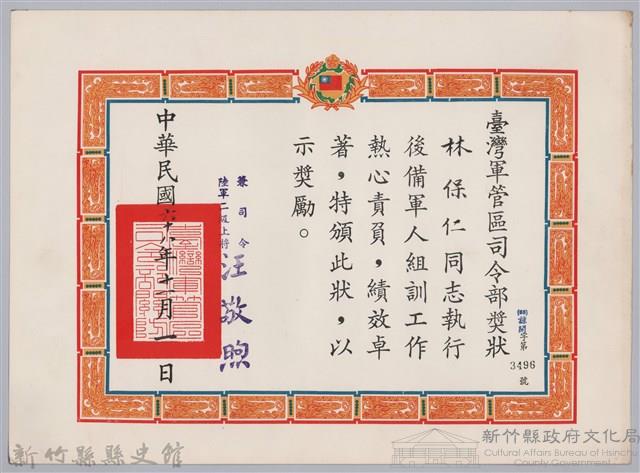 臺灣軍管區司令部獎狀
諒闊字第
3496
號
林保仁同志執行
後備軍人組訓工作
熱心責負，績效卓
著，特頒此狀，以
示獎勵。
兼司令
陸軍二級上將
汪敬煦
中華民國六十八年十一月一日
新竹縣縣史館
新竹縣政府文化局
Cultural Affairs Bureau of Hsinchu
County Government